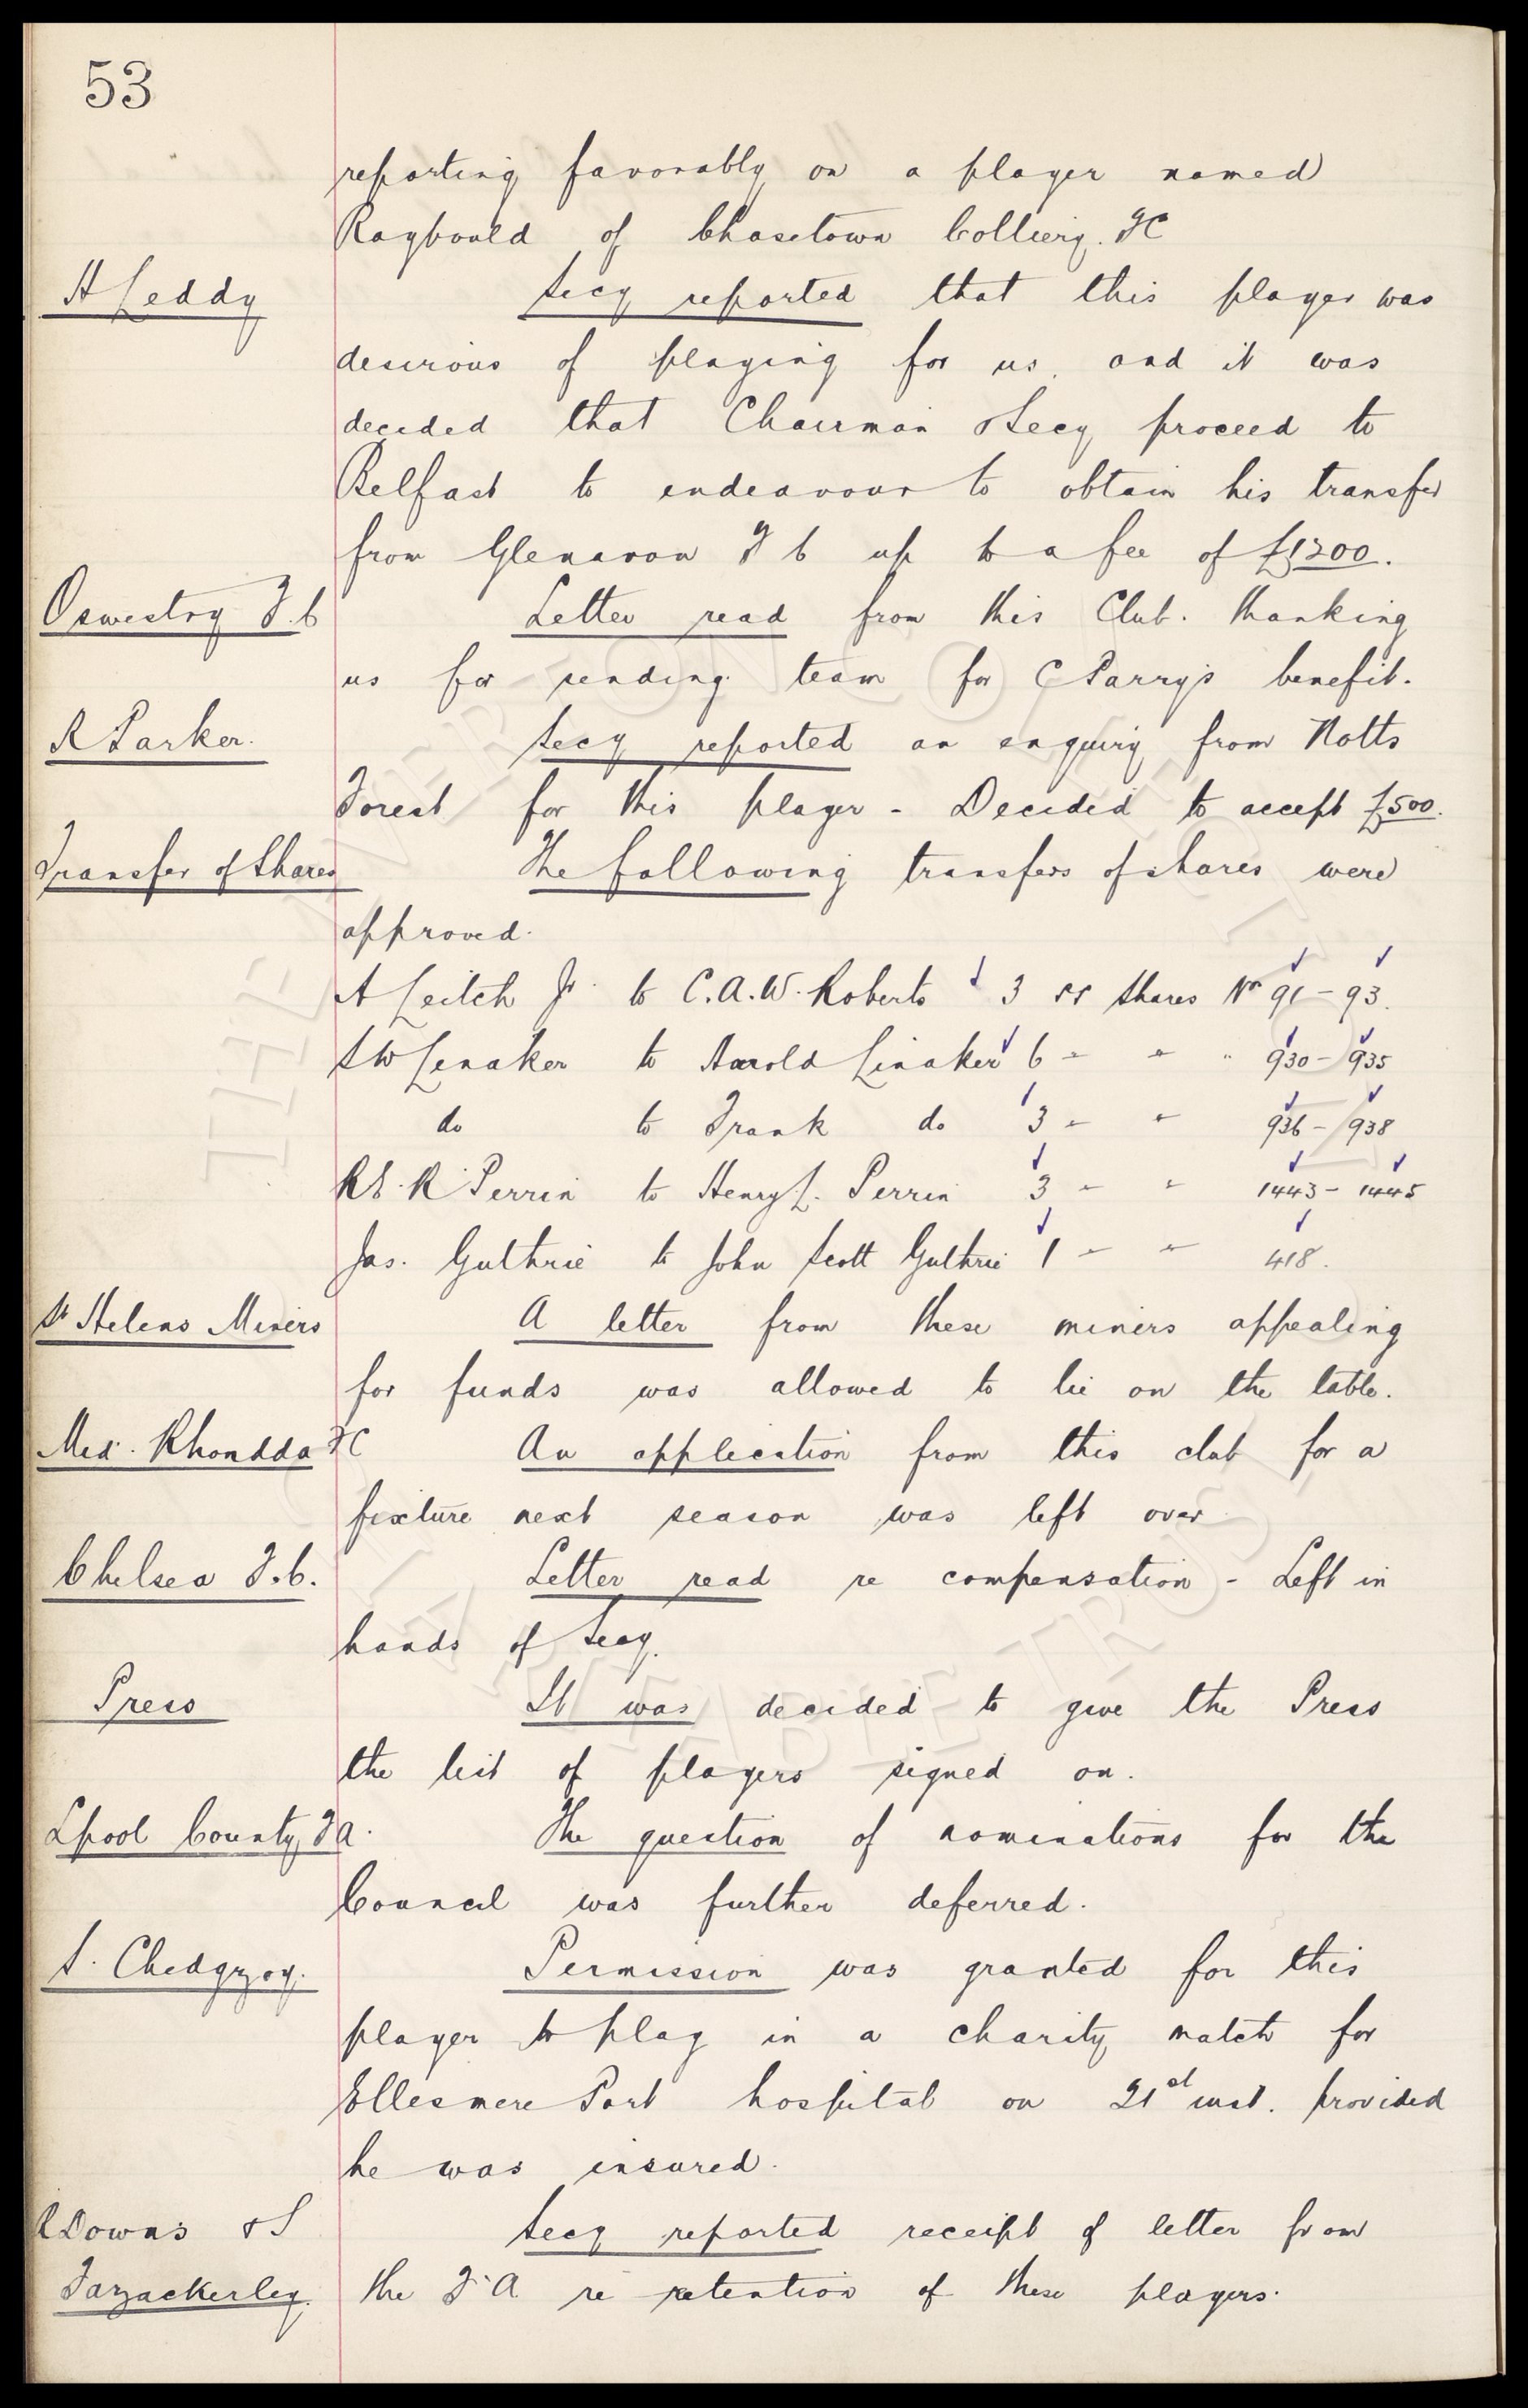 53
reporting favorably on a player named
Raybould of Chasetown Colliery. FC
H Leddy Secy reported that this player was
desirous of playing for us, and it was
decided that Chairman & Secy proceed to
Belfast to endeavour to obtain his transfer
from Glenavon F C up to a fee of £1200.
Oswestry F.C Letter read from this Club. thanking
us for sending team for C Parry's benefit.
R Parker. Secy reported an enquiry from Notts
Forest for this player - Decided to accept £500.
Transfer of Shares The following transfers of shares were
approved.
A Leitch Jr. to C.A.W. Roberts 3 shares Nos 91 - 93.
S W Linaker to Harold Linaker 6 " " " 930 - 935
do to Frank do 3 " " 936 - 938
R E. R Perrin to Henry L. Perrin 3 " " 1443 - 1445
Jas. Guthrie to John Scott Guthrie 1 " " 418.
St Helens Miners A letter from these miners appealing
for funds was allowed to lie on the table.
Mid. Rhondda FC An application from this club for a
fixture next season was left over
Chelsea F.C. Letter read re compensation - Left in
hands of Secy.
Press It was decided to give the Press
the list of players signed on.
Lpool County FA. The question of nominations for the
Council was further deferred.
S. Chedgzoy. Permission was granted for this
player to play in a charity match for
Ellesmere Port hospital on 21st inst. provided
he was insured.
R Downs & S Secy reported receipt of letter from
Fazackerley. the F.A re retention of these players.